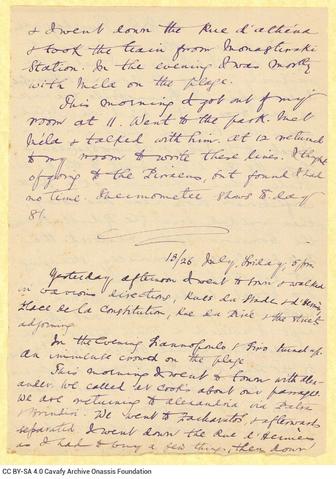 & I went down the Rue d'athéna
& took the train from Monastiraki
Station. In the evening I was mostly
with Mila on the plage.
This morning I got out of my
room at 11. Went to the park. Met
Mila & talked with him. At 12 returned
to my room to write these lines. I thought
of going to the Piraeus, but found I had
no time. Thermometer shows to day
81.
13/26 July, Friday, 5 pm
Yesterday afternoon I went to town & walked
in various directions, Rues du Stade & d'Hermès
Place de la Constitution, Rue du and the streets
adjoining.
In the evening & turned up.
an immense crowd on the plage
This morning I went to town with Alex-
ander. We called at Cooks about our passages.
We are returning to Alexandria via Patras
& Brindisi. We went to Zacharatos, & afterwards
separated. I went down the Rue d'Hermès
as I had to buy a few things, then down
CC BY-SA 4.0 Cavafy Archive Onassis Foundation